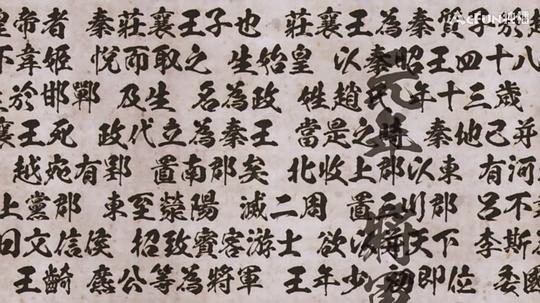 AcFun独播
皇帝者 秦莊襄王子也 莊襄王為秦質子於趙
不韋姬 悅而取之 生始皇 以秦昭王四十八
生於邯鄲 及生 名為政 姓趙氏 年十三歲
襄王死 政代立為秦王 當是之時 秦他已并
越宛有郢 置南郡矣 北收上郡以東 有河
上黨郡 東至滎陽 滅二周 置三川郡 呂不
曰文信侯 招致賓客游士 欲以并天下 李斯
王齮 麃公等為將軍 王年少 初即位 委國
元年 將軍